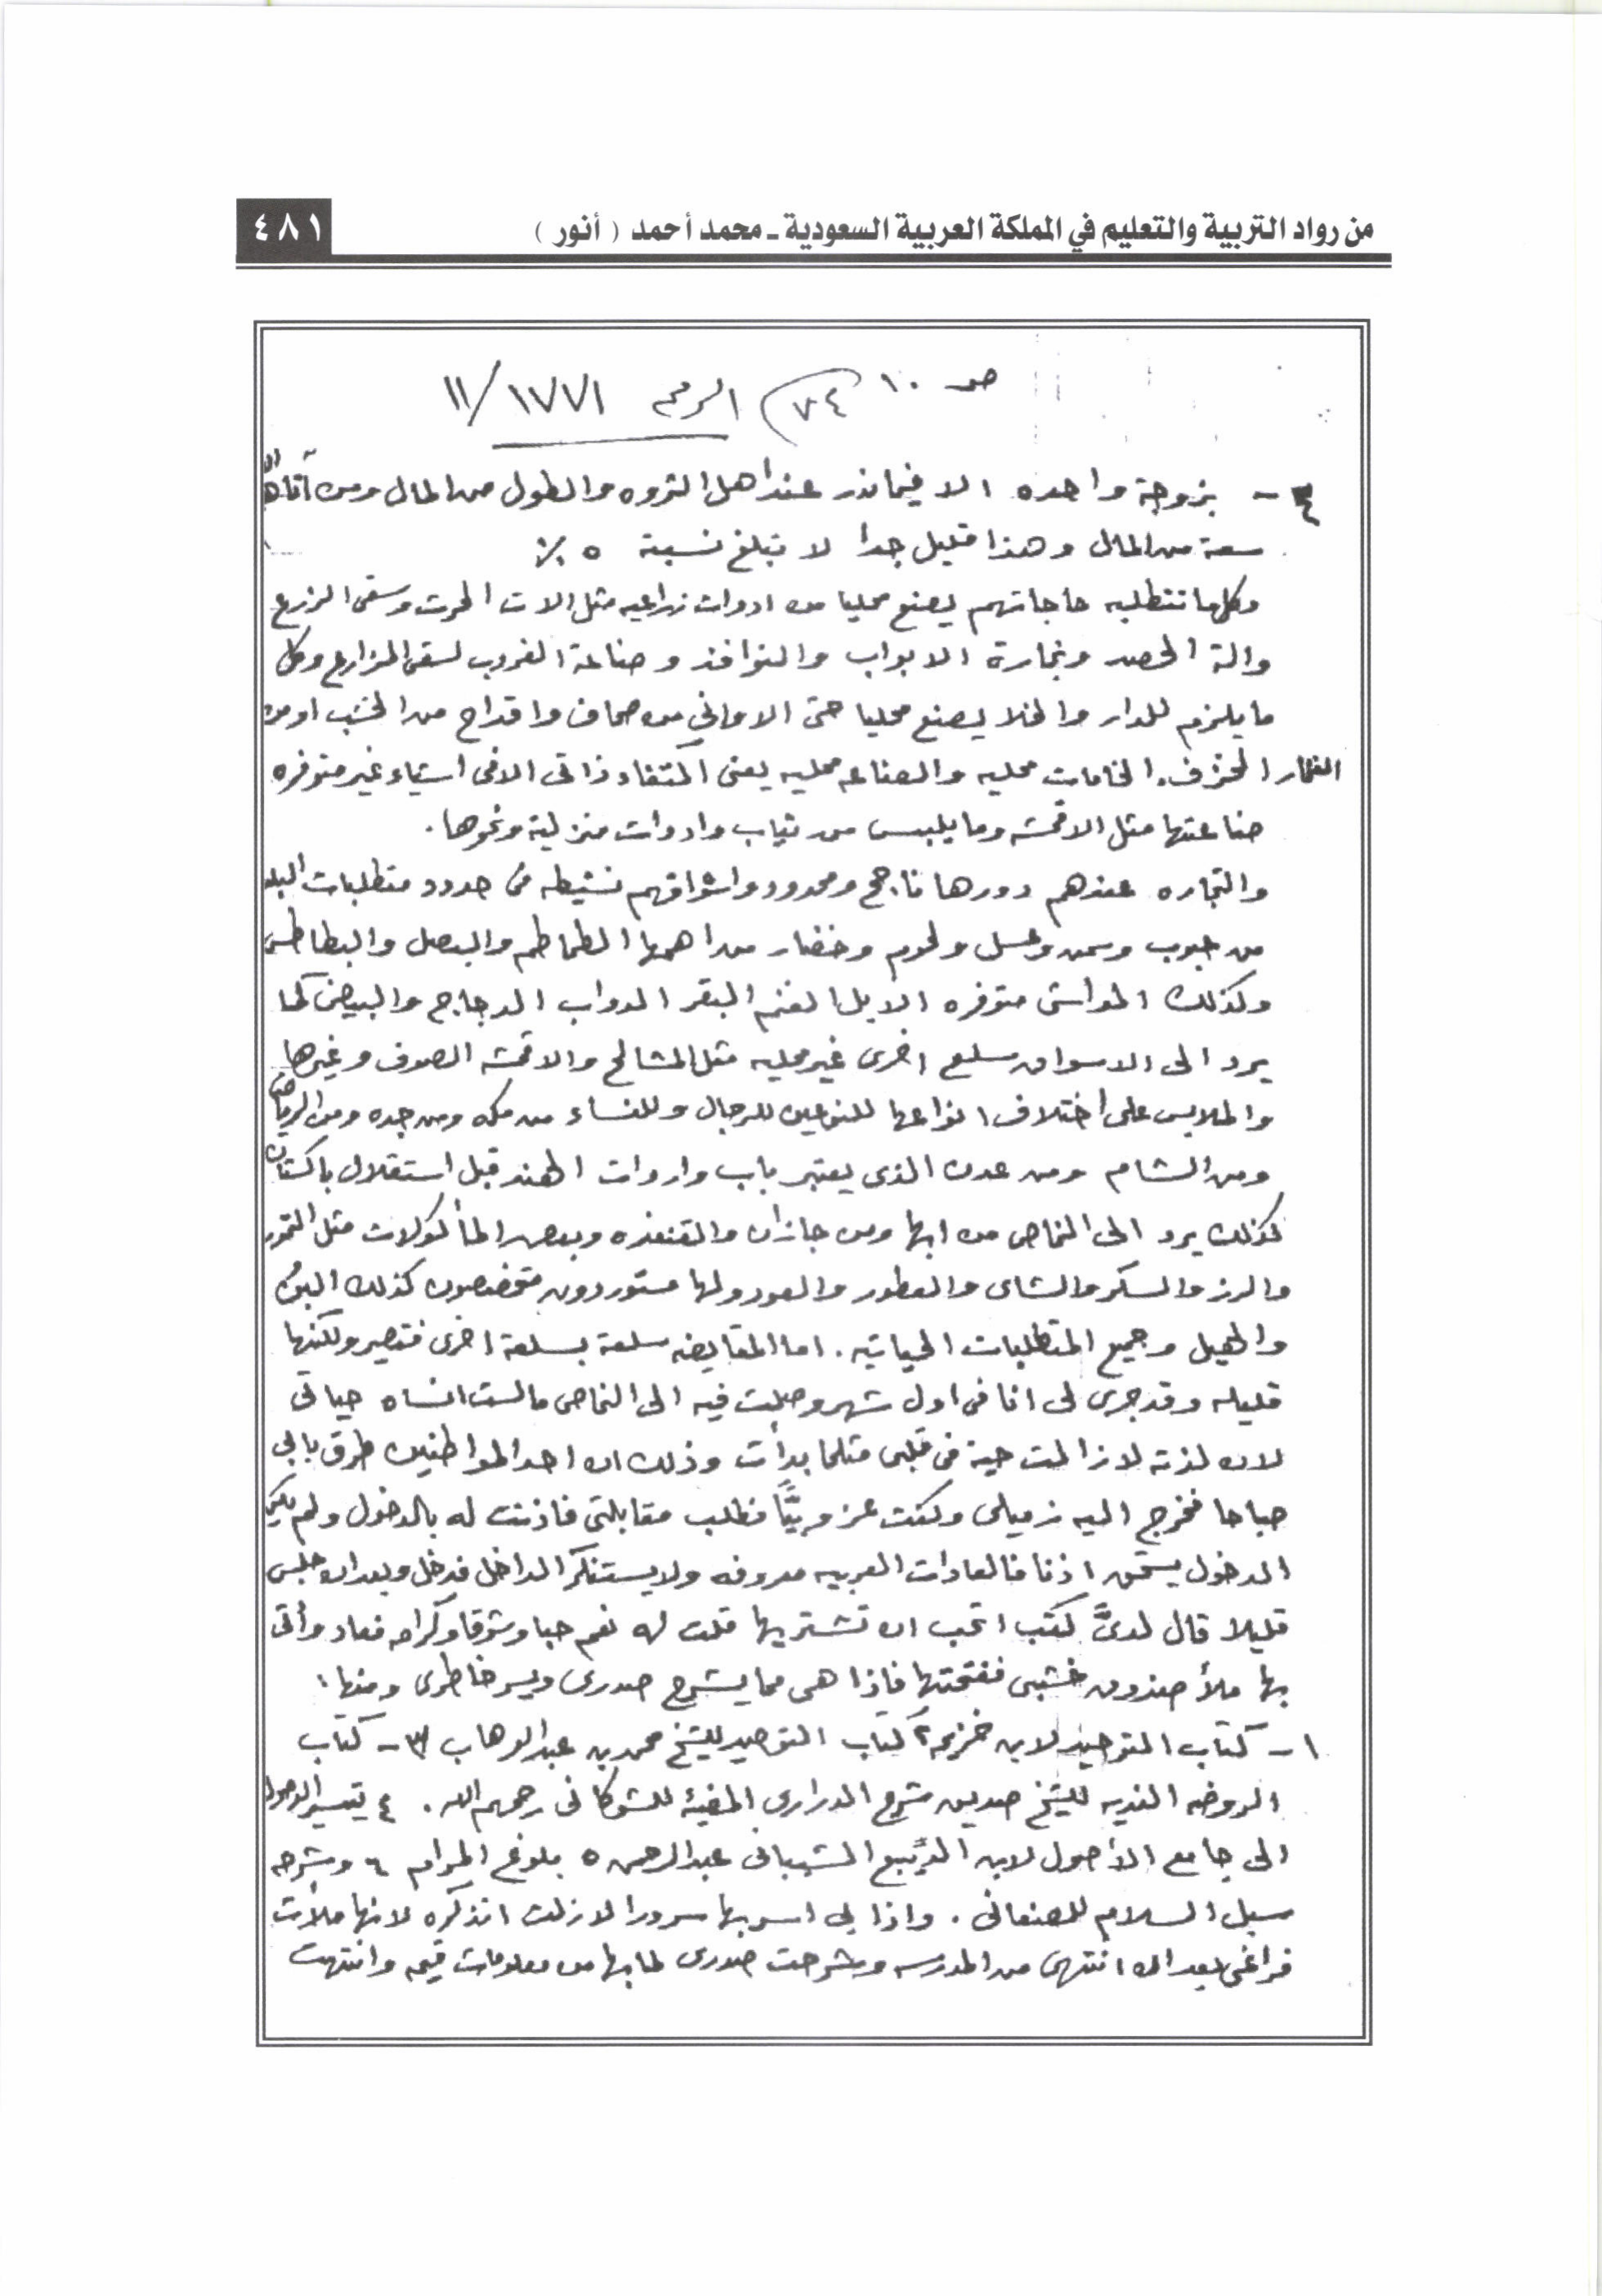 من رواد التربية والتعليم في المملكة العربية السعودية ـ محمد أحمد ( أنور )
٤٨١
صـ ١٠ ٧٤ الرقم ١١/١٧٧١
٣ - بزوجة واحده الا فيما نذر عند أهل الثروه والطول من المال ومن آتاه الله
سعة من المال وهذا قليل جدا لا تبلغ نسبة ٥ ٪
وكل ما تتطلبه حاجاتهم يصنع محليا من ادوات زراعيه مثل الات الحرث وسقى الزرع
والة الحصد ونجارة الابواب والنوافذ وصناعة الغروب لسقى المزارع وكل
ما يلزم للدار والخلا يصنع محليا حتى الاوانى من صحاف واقداح من الخشب او من
الفخار الخزف. الخامات محليه والصناعه محليه يعنى اكتفاء ذاتى الا فى اشياء غير متوفره
صناعتها مثل الاقمشه وما يلبس من ثياب وادوات منزلية ونحوها.
والتجاره عندهم دورها ناجح ومحدود واسواقهم نشيطه فى حدود متطلبات البلد
من حبوب وسمن وعسل ولحوم وخضار من اهمها الطماطم والبصل والبطاطس
وكذلك المواشى متوفره الابل الغنم البقر الدواب الدجاج والبيض كما
يرد الى الاسواق سلع اخرى غير محليه مثل المشالح والاقمشه الصوف وغيرها
والملابس على أختلاف انواعها للنوعين للرجال وللنساء من مكه ومن جده ومن الرياض
ومن الشام ومن عدن الذى يعتبر باب واردات الهند قبل استقلال باكستان
كذلك يرد الى النماص من ابها ومن جازان والقنفذه وبعض المأكولات مثل التمور
والرز والسكر والشاى والعطور والعود ولها مستوردون متخصصون كذلك البن
والهيل وجميع المتطلبات الحياتيه. اما المقايضه سلعة بسلعة اخرى فتصير ولكنها
قليله وقد جرى لى انا فى اول شهر وصلت فيه الى النماص مالست انساه حياتى
لان لذته لازالت حية فى قلبى مثلما بدأت وذلك ان احد المواطنين طرق بابى
صباحا فخرج اليه زميلى وكنت عزوبيًّا فطلب مقابلتى فاذنت له بالدخول ولم يكن
الدخول يستحق اذنا فالعادات العربيه معروفه ولا يستنكر الداخل فدخل وبعد ان جلس
قليلا قال لدىَّ كتب اتحب ان تشتريها قلت له نعم حبا وشوقا وكرامه فعاد وأتى
بها ملأ صندوق خشبى ففتحتها فاذا هى مما يشرح صدرى ويسر خاطرى ومنها:
١ - كتاب التوحيد لابن خزيمه ٢ كتاب التوحيد للشيخ محمد بن عبدالوهاب ٣ - كتاب
الروضه النديه للشيخ صديق شرح الدرارى المضيئة للشوكانى رحمهم الله. ٤ تيسير الوصول
الى جامع الأصول لابن الديبع الشيبانى عبدالرحمن ٥ بلوغ المرام ٦ وشرحه
سبل السلام للصنعانى. واذا بى اسر بها سرورا لازلت اتذكره لانها ملأت
فراغى بعد ان انتهى من المدرسه وشرحت صدرى لما بها من معلومات قيمه وانتهت